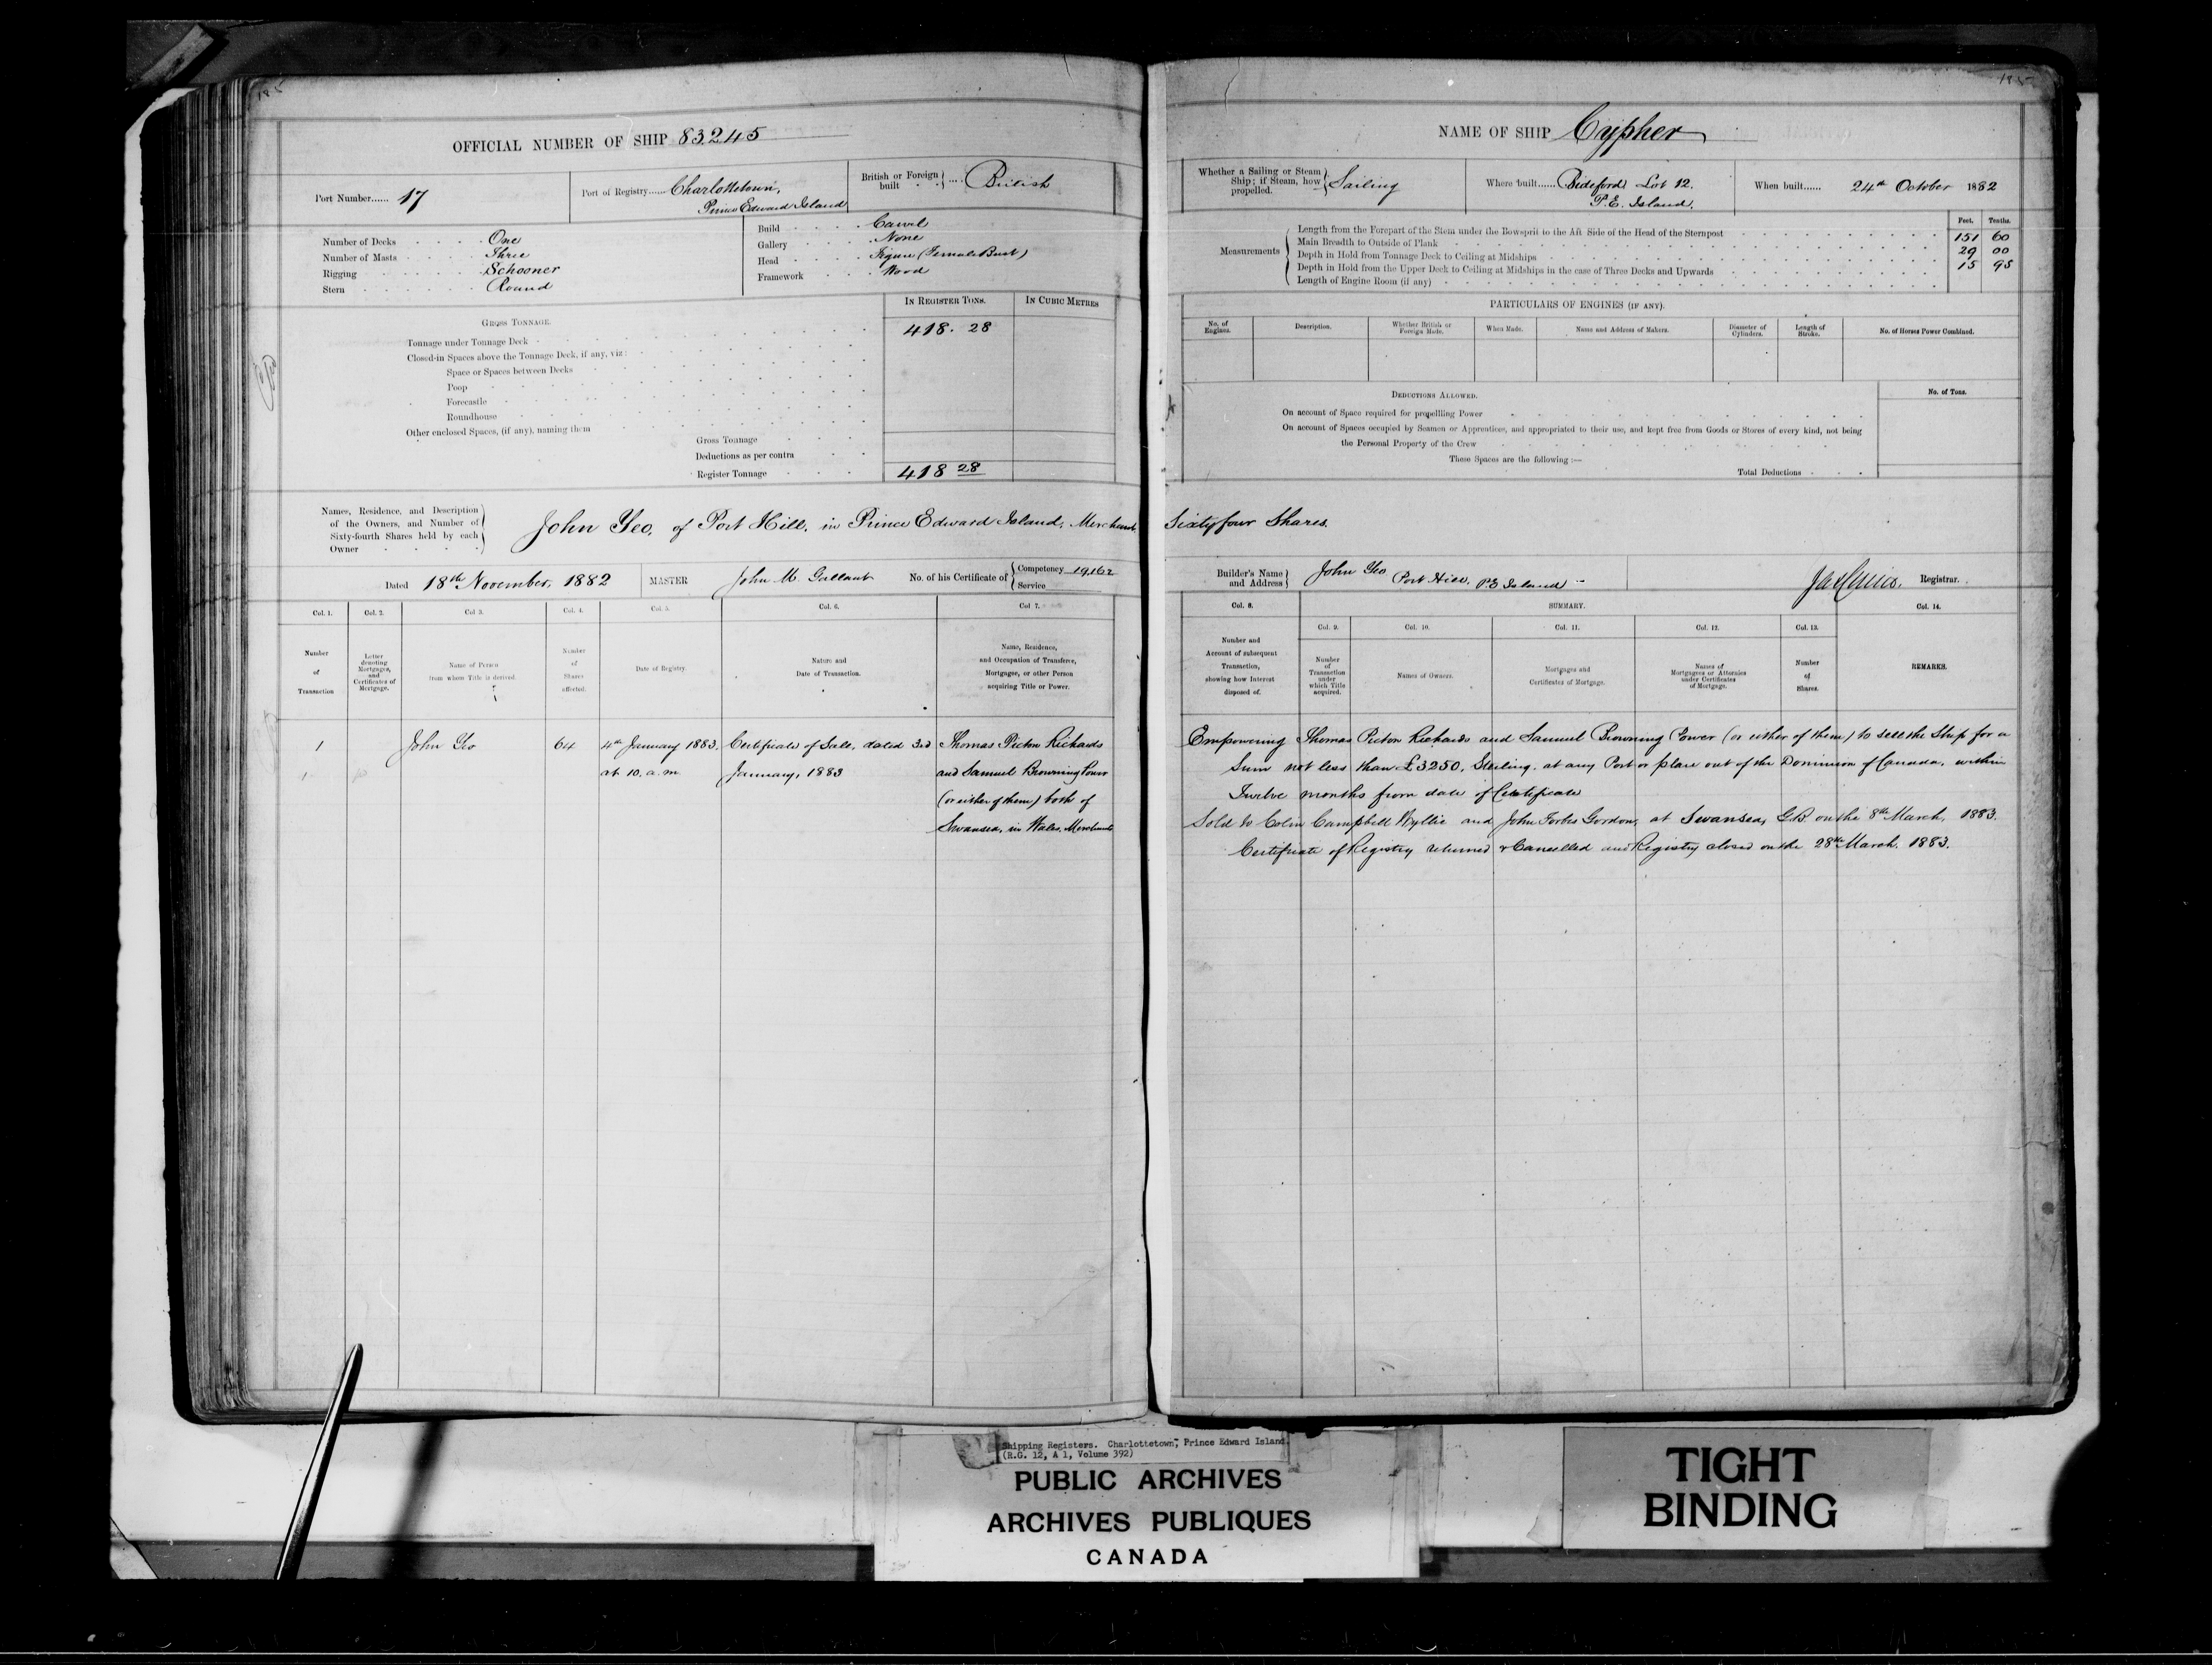 185
OFFICIAL NUMBER OF SHIP 83245
Port Number...... 17
Port of Registry...... Charlottetown,
Prince Edward Island
British or Foreign built .... British
Number of Decks One
Number of Masts Three
Rigging Schooner
Stern Round
Build Carvel
Gallery None
Head Figure (Female Bust)
Framework Wood
IN REGISTER TONS. IN CUBIC METRES
GROSS TONNAGE.
Tonnage under Tonnage Deck 418. 28
Closed-in Spaces above the Tonnage Deck, if any, viz:
Space or Spaces between Decks
Poop
Forecastle
Roundhouse
Other enclosed Spaces, (if any), naming them
Gross Tonnage
Deductions as per contra
Register Tonnage 418 28
Names, Residence, and Description
of the Owners, and Number of
Sixty-fourth Shares held by each
Owner
John Yeo, of Port Hill, in Prince Edward Island, Merchant
Dated 18th November, 1882 MASTER John M. Gallant No. of his Certificate of Competency 19,162
Service
Col. 1. Col. 2. Col. 3. Col. 4. Col. 5. Col. 6. Col. 7.
Number of Transaction
Letter denoting Mortgages, and Certificates of Mortgage.
Name of Person from whom Title is derived.
Number of Shares affected.
Date of Registry.
Nature and Date of Transaction.
Name, Residence, and Occupation of Transferee, Mortgagee, or other Person acquiring Title or Power.
1 John Yeo 64 4th January 1883. Certificate of Sale, dated 3rd Thomas Picton Richards
1 at 10. a.m January, 1883 and Samuel Browning Power
(or either of them) both of
Swansea, in Wales, Merchants
185
NAME OF SHIP Cypher
Whether a Sailing or Steam Ship; if Steam, how propelled. Sailing
Where built...... Bideford Lot 12.
P.E. Island.
When built...... 24th October 1882
Feet. Tenths.
Measurements
Length from the Forepart of the Stem under the Bowsprit to the Aft Side of the Head of the Sternpost 151 60
Main Breadth to Outside of Plank 29 00
Depth in Hold from Tonnage Deck to Ceiling at Midships 15 95
Depth in Hold from the Upper Deck to Ceiling at Midships in the case of Three Decks and Upwards
Length of Engine Room (if any)
PARTICULARS OF ENGINES (IF ANY).
No. of Engines. Description. Whether British or Foreign Made. When Made. Name and Address of Makers. Diameter of Cylinders. Length of Stroke. No. of Horses Power Combined.
DEDUCTIONS ALLOWED. No. of Tons.
On account of Space required for propelling Power
On account of Spaces occupied by Seamen or Apprentices, and appropriated to their use, and kept free from Goods or Stores of every kind, not being
the Personal Property of the Crew
These Spaces are the following :—
Total Deductions
Sixty four Shares.
Builder's Name and Address John Yeo Port Hill, P.E Island
Registrar.
Col. 8. SUMMARY. Col. 14.
Col. 9. Col. 10. Col. 11. Col. 12. Col. 13.
Number and Account of subsequent Transaction, showing how Interest disposed of.
Number of Transaction under which Title acquired.
Names of Owners.
Mortgages and Certificates of Mortgage.
Names of Mortgagees or Attornies under Certificates of Mortgage.
Number of Shares.
REMARKS.
Empowering Thomas Picton Richards and Samuel Browning Power (or either of them) to sell the Ship for a
Sum not less than £3250, Sterling, at any Port or place out of the Dominion of Canada, within
Twelve months from date of Certificate
Sold to Colin Campbell Wyllie and John Forbes Gordon, at Swansea, G.B on the 8th March, 1883.
Certificate of Registry returned & Cancelled and Registry closed on the 28th March. 1883.
Shipping Registers. Charlottetown, Prince Edward Island.
(R.G. 12, A 1, Volume 392)
PUBLIC ARCHIVES
ARCHIVES PUBLIQUES
CANADA
TIGHT
BINDING